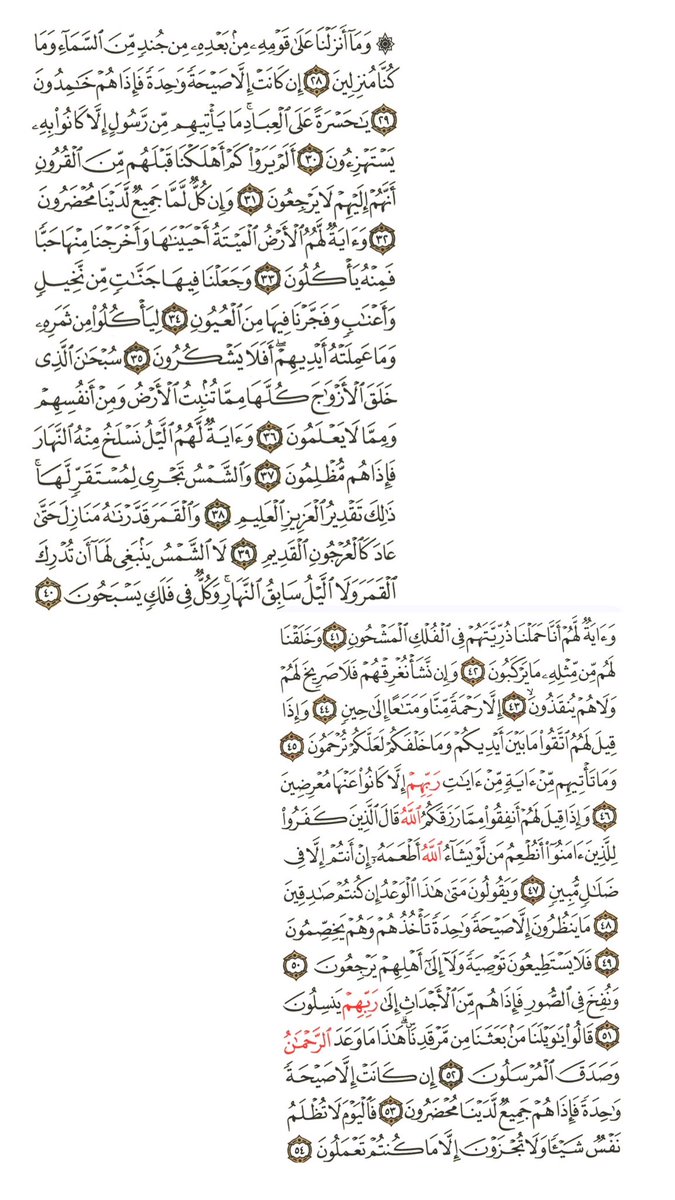 ۞ وَمَآ أَنزَلْنَا عَلَىٰ قَوْمِهِۦ مِنۢ بَعْدِهِۦ مِن جُندٍ مِّنَ ٱلسَّمَآءِ وَمَا
كُنَّا مُنزِلِينَ ٢٨ إِن كَانَتْ إِلَّا صَيْحَةً وَٰحِدَةً فَإِذَا هُمْ خَٰمِدُونَ
٢٩ يَٰحَسْرَةً عَلَى ٱلْعِبَادِ ۚ مَا يَأْتِيهِم مِّن رَّسُولٍ إِلَّا كَانُوا۟ بِهِۦ
يَسْتَهْزِءُونَ ٣٠ أَلَمْ يَرَوْا۟ كَمْ أَهْلَكْنَا قَبْلَهُم مِّنَ ٱلْقُرُونِ
أَنَّهُمْ إِلَيْهِمْ لَا يَرْجِعُونَ ٣١ وَإِن كُلٌّ لَّمَّا جَمِيعٌ لَّدَيْنَا مُحْضَرُونَ
٣٢ وَءَايَةٌ لَّهُمُ ٱلْأَرْضُ ٱلْمَيْتَةُ أَحْيَيْنَٰهَا وَأَخْرَجْنَا مِنْهَا حَبًّا
فَمِنْهُ يَأْكُلُونَ ٣٣ وَجَعَلْنَا فِيهَا جَنَّٰتٍ مِّن نَّخِيلٍ
وَأَعْنَٰبٍ وَفَجَّرْنَا فِيهَا مِنَ ٱلْعُيُونِ ٣٤ لِيَأْكُلُوا۟ مِن ثَمَرِهِۦ
وَمَا عَمِلَتْهُ أَيْدِيهِمْ ۖ أَفَلَا يَشْكُرُونَ ٣٥ سُبْحَٰنَ ٱلَّذِى
خَلَقَ ٱلْأَزْوَٰجَ كُلَّهَا مِمَّا تُنۢبِتُ ٱلْأَرْضُ وَمِنْ أَنفُسِهِمْ
وَمِمَّا لَا يَعْلَمُونَ ٣٦ وَءَايَةٌ لَّهُمُ ٱلَّيْلُ نَسْلَخُ مِنْهُ ٱلنَّهَارَ
فَإِذَا هُم مُّظْلِمُونَ ٣٧ وَٱلشَّمْسُ تَجْرِى لِمُسْتَقَرٍّ لَّهَا ۚ
ذَٰلِكَ تَقْدِيرُ ٱلْعَزِيزِ ٱلْعَلِيمِ ٣٨ وَٱلْقَمَرَ قَدَّرْنَٰهُ مَنَازِلَ حَتَّىٰ
عَادَ كَٱلْعُرْجُونِ ٱلْقَدِيمِ ٣٩ لَا ٱلشَّمْسُ يَنۢبَغِى لَهَآ أَن تُدْرِكَ
ٱلْقَمَرَ وَلَا ٱلَّيْلُ سَابِقُ ٱلنَّهَارِ ۚ وَكُلٌّ فِى فَلَكٍ يَسْبَحُونَ ٤٠
وَءَايَةٌ لَّهُمْ أَنَّا حَمَلْنَا ذُرِّيَّتَهُمْ فِى ٱلْفُلْكِ ٱلْمَشْحُونِ ٤١ وَخَلَقْنَا
لَهُم مِّن مِّثْلِهِۦ مَا يَرْكَبُونَ ٤٢ وَإِن نَّشَأْ نُغْرِقْهُمْ فَلَا صَرِيخَ لَهُمْ
وَلَا هُمْ يُنقَذُونَ ٤٣ إِلَّا رَحْمَةً مِّنَّا وَمَتَٰعًا إِلَىٰ حِينٍ ٤٤ وَإِذَا
قِيلَ لَهُمُ ٱتَّقُوا۟ مَا بَيْنَ أَيْدِيكُمْ وَمَا خَلْفَكُمْ لَعَلَّكُمْ تُرْحَمُونَ ٤٥
وَمَا تَأْتِيهِم مِّنْ ءَايَةٍ مِّنْ ءَايَٰتِ رَبِّهِمْ إِلَّا كَانُوا۟ عَنْهَا مُعْرِضِينَ
٤٦ وَإِذَا قِيلَ لَهُمْ أَنفِقُوا۟ مِمَّا رَزَقَكُمُ ٱللَّهُ قَالَ ٱلَّذِينَ كَفَرُوا۟
لِلَّذِينَ ءَامَنُوٓا۟ أَنُطْعِمُ مَن لَّوْ يَشَآءُ ٱللَّهُ أَطْعَمَهُۥٓ إِنْ أَنتُمْ إِلَّا فِى
ضَلَٰلٍ مُّبِينٍ ٤٧ وَيَقُولُونَ مَتَىٰ هَٰذَا ٱلْوَعْدُ إِن كُنتُمْ صَٰدِقِينَ
٤٨ مَا يَنظُرُونَ إِلَّا صَيْحَةً وَٰحِدَةً تَأْخُذُهُمْ وَهُمْ يَخِصِّمُونَ
٤٩ فَلَا يَسْتَطِيعُونَ تَوْصِيَةً وَلَآ إِلَىٰٓ أَهْلِهِمْ يَرْجِعُونَ ٥٠
وَنُفِخَ فِى ٱلصُّورِ فَإِذَا هُم مِّنَ ٱلْأَجْدَاثِ إِلَىٰ رَبِّهِمْ يَنسِلُونَ
٥١ قَالُوا۟ يَٰوَيْلَنَا مَنۢ بَعَثَنَا مِن مَّرْقَدِنَا ۜ ۗ هَٰذَا مَا وَعَدَ ٱلرَّحْمَٰنُ
وَصَدَقَ ٱلْمُرْسَلُونَ ٥٢ إِن كَانَتْ إِلَّا صَيْحَةً
وَٰحِدَةً فَإِذَا هُمْ جَمِيعٌ لَّدَيْنَا مُحْضَرُونَ ٥٣ فَٱلْيَوْمَ لَا تُظْلَمُ
نَفْسٌ شَيْـًٔا وَلَا تُجْزَوْنَ إِلَّا مَا كُنتُمْ تَعْمَلُونَ ٥٤